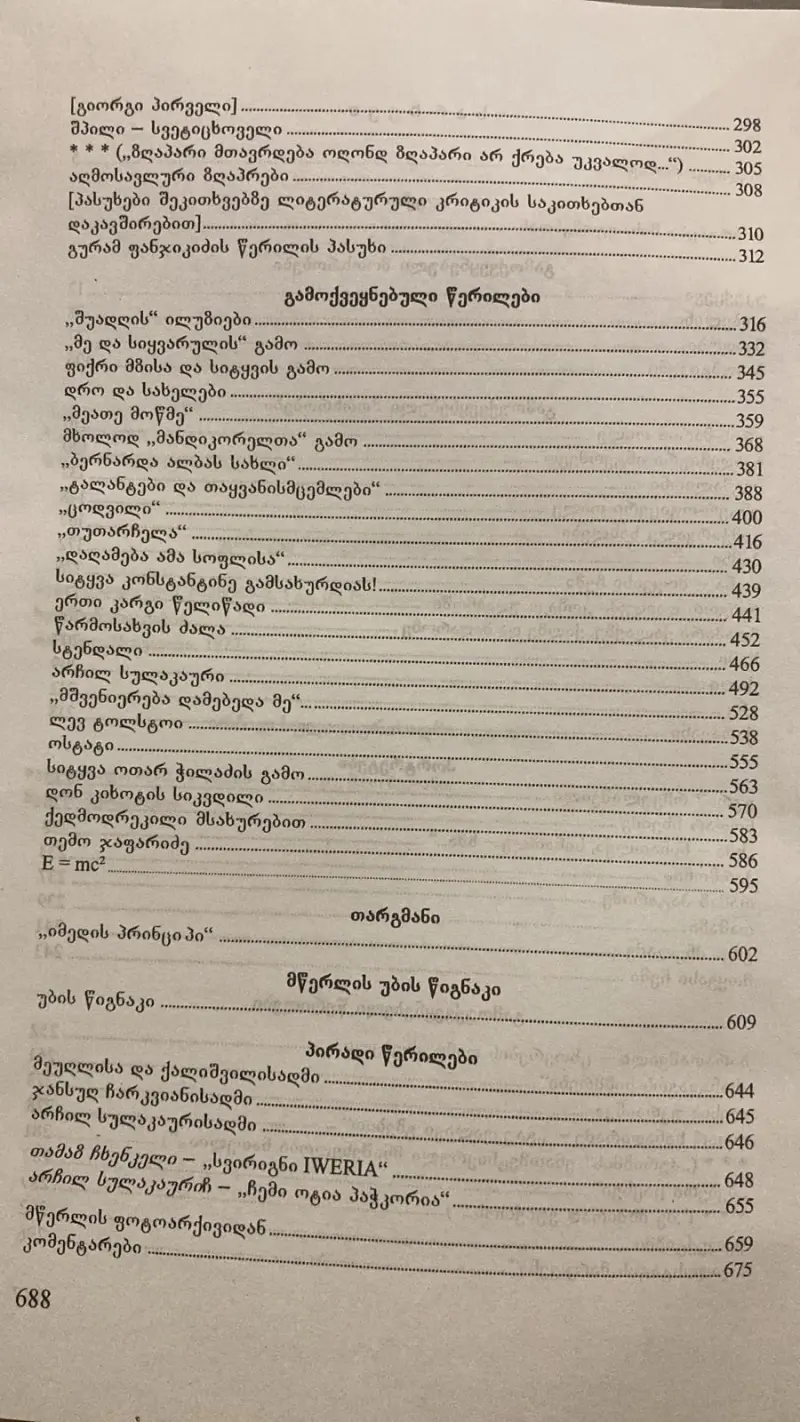 [გიორგი პირველი] ........ 298
შპილი – სვეტიცხოველი ........ 302
* * * („ზღაპარი მთავრდება ოღონდ ზღაპარი არ ქრება უკვალოდ...“) ........ 305
აღმოსავლური ზღაპრები ........ 308
[პასუხები შეკითხვებზე ლიტერატურული კრიტიკის საკითხებთან
დაკავშირებით] ........ 310
გურამ ფანჯიკიძის წერილის პასუხი ........ 312
გამოქვეყნებული წერილები
„შუადღის“ ილუზიები ........ 316
„მე და სიყვარულის“ გამო ........ 332
ფიქრი მზისა და სიტყვის გამო ........ 345
დრო და სახელები ........ 355
„მეათე მოწმე“ ........ 359
მხოლოდ „მანდიკორელთა“ გამო ........ 368
„ბერნარდა ალბას სახლი“ ........ 381
„ტალანტები და თაყვანისმცემლები“ ........ 388
„ცოდვილი“ ........ 400
„თუთარჩელა“ ........ 416
„დაღამება ამა სოფლისა“ ........ 430
სიტყვა კონსტანტინე გამსახურდიას! ........ 439
ერთი კარგი წელიწადი ........ 441
წარმოსახვის ძალა ........ 452
სტენდალი ........ 466
არჩილ სულაკაური ........ 492
„მშვენიერება დამებედა მე“... ........ 528
ლევ ტოლსტოი ........ 538
ოსტატი ........ 555
სიტყვა ოთარ ჭილაძის გამო ........ 563
დონ კიხოტის სიკვდილი ........ 570
ქედმოდრეკილი მსახურებით ........ 583
თემო ჯაფარიძე ........ 586
E = mc² ........ 595
თარგმანი
„იმედის პრინციპი“ ........ 602
მწერლის უბის წიგნაკი
უბის წიგნაკი ........ 609
პირადი წერილები
მეუღლისა და ქალიშვილისადმი ........ 644
ჯანსუღ ჩარკვიანისადმი ........ 645
არჩილ სულაკაურისადმი ........ 646
თამაზ ჩხენკელი – „სვირიგნი IWERIA“ ........ 648
არჩილ სულაკაურიჩ – „ჩემი ოტია პაჭკორია“ ........ 655
მწერლის ფოტოარქივიდან ........ 659
კომენტარები ........ 675
688